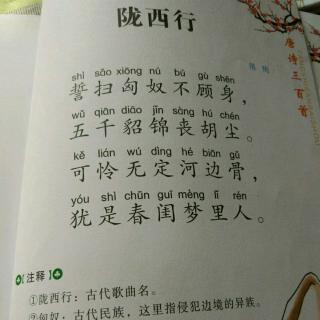 陇西行
唐诗三百首
shì sǎo xiōng nú bú gù shēn
誓扫匈奴不顾身，
wǔ qiān diāo jǐn sàng hú chén
五千貂锦丧胡尘。
kě lián wú dìng hé biān gǔ
可怜无定河边骨，
yóu shì chūn guī mèng lǐ rén
犹是春闺梦里人。
【注释】
①陇西行：古代歌曲名。
②匈奴：古代民族，这里指侵犯边境的异族。